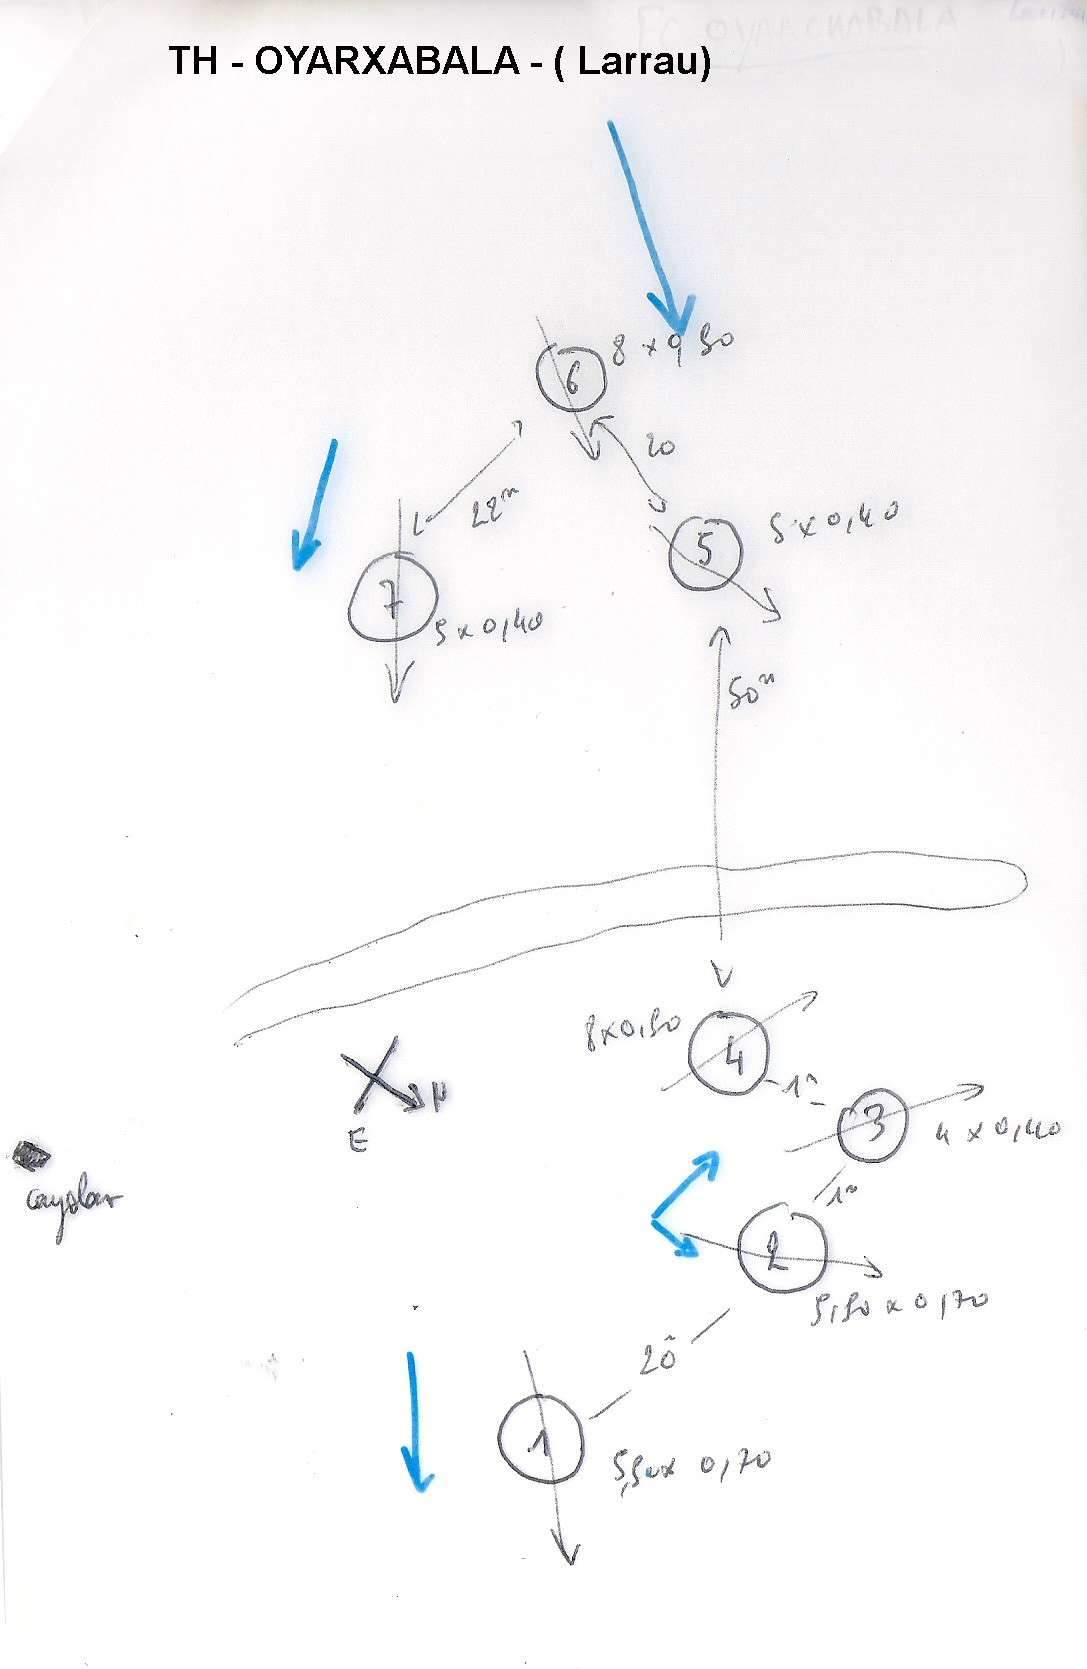 TH - OYARXABALA - ( Larrau)
6
8 x 0,50
20
22m
5
5 x 0,40
7
5 x 0,40
50m
8x0,50
4
1m
3
4 x 0,40
N
E
cayolar
1m
2
5,50 x 0,70
20m
1
5,50x 0,70